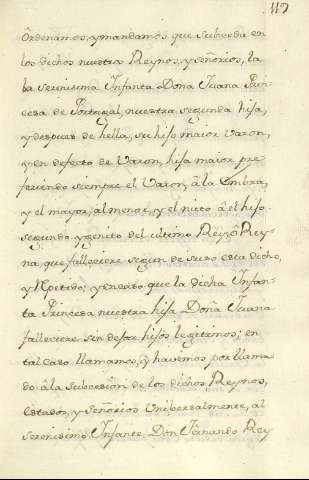 117
Ordenamos, y mandamos que Subceda en
los dichos nuestros Reynos, y señorios, la
la serenisima Infanta Doña Juana Prin-
cesa de Portugal, nuestra segunda hija,
y despues de hella, su hijo maior Varon,
y en defecto de Varon, hija maior pre
feriendo siempre el Varon, â la Embra,
y el mayor, al menor, y el nieto â el hijo
segundo ygenito del ultimo Rey, ô Rey-
na que fallesciere segun de suso esta dicho,
y Repetido; y en caso que la dicha Infan-
ta Princesa nuestra hija Doña Juana
fallesciere sin dejar hijos legitimos; en
tal caso llamamos, y havemos por llama
do â la subcesion de los dichos Reynos,
estados, y Señorios Unibersalmente, al
serenisimo Infante Don Fernando Rey